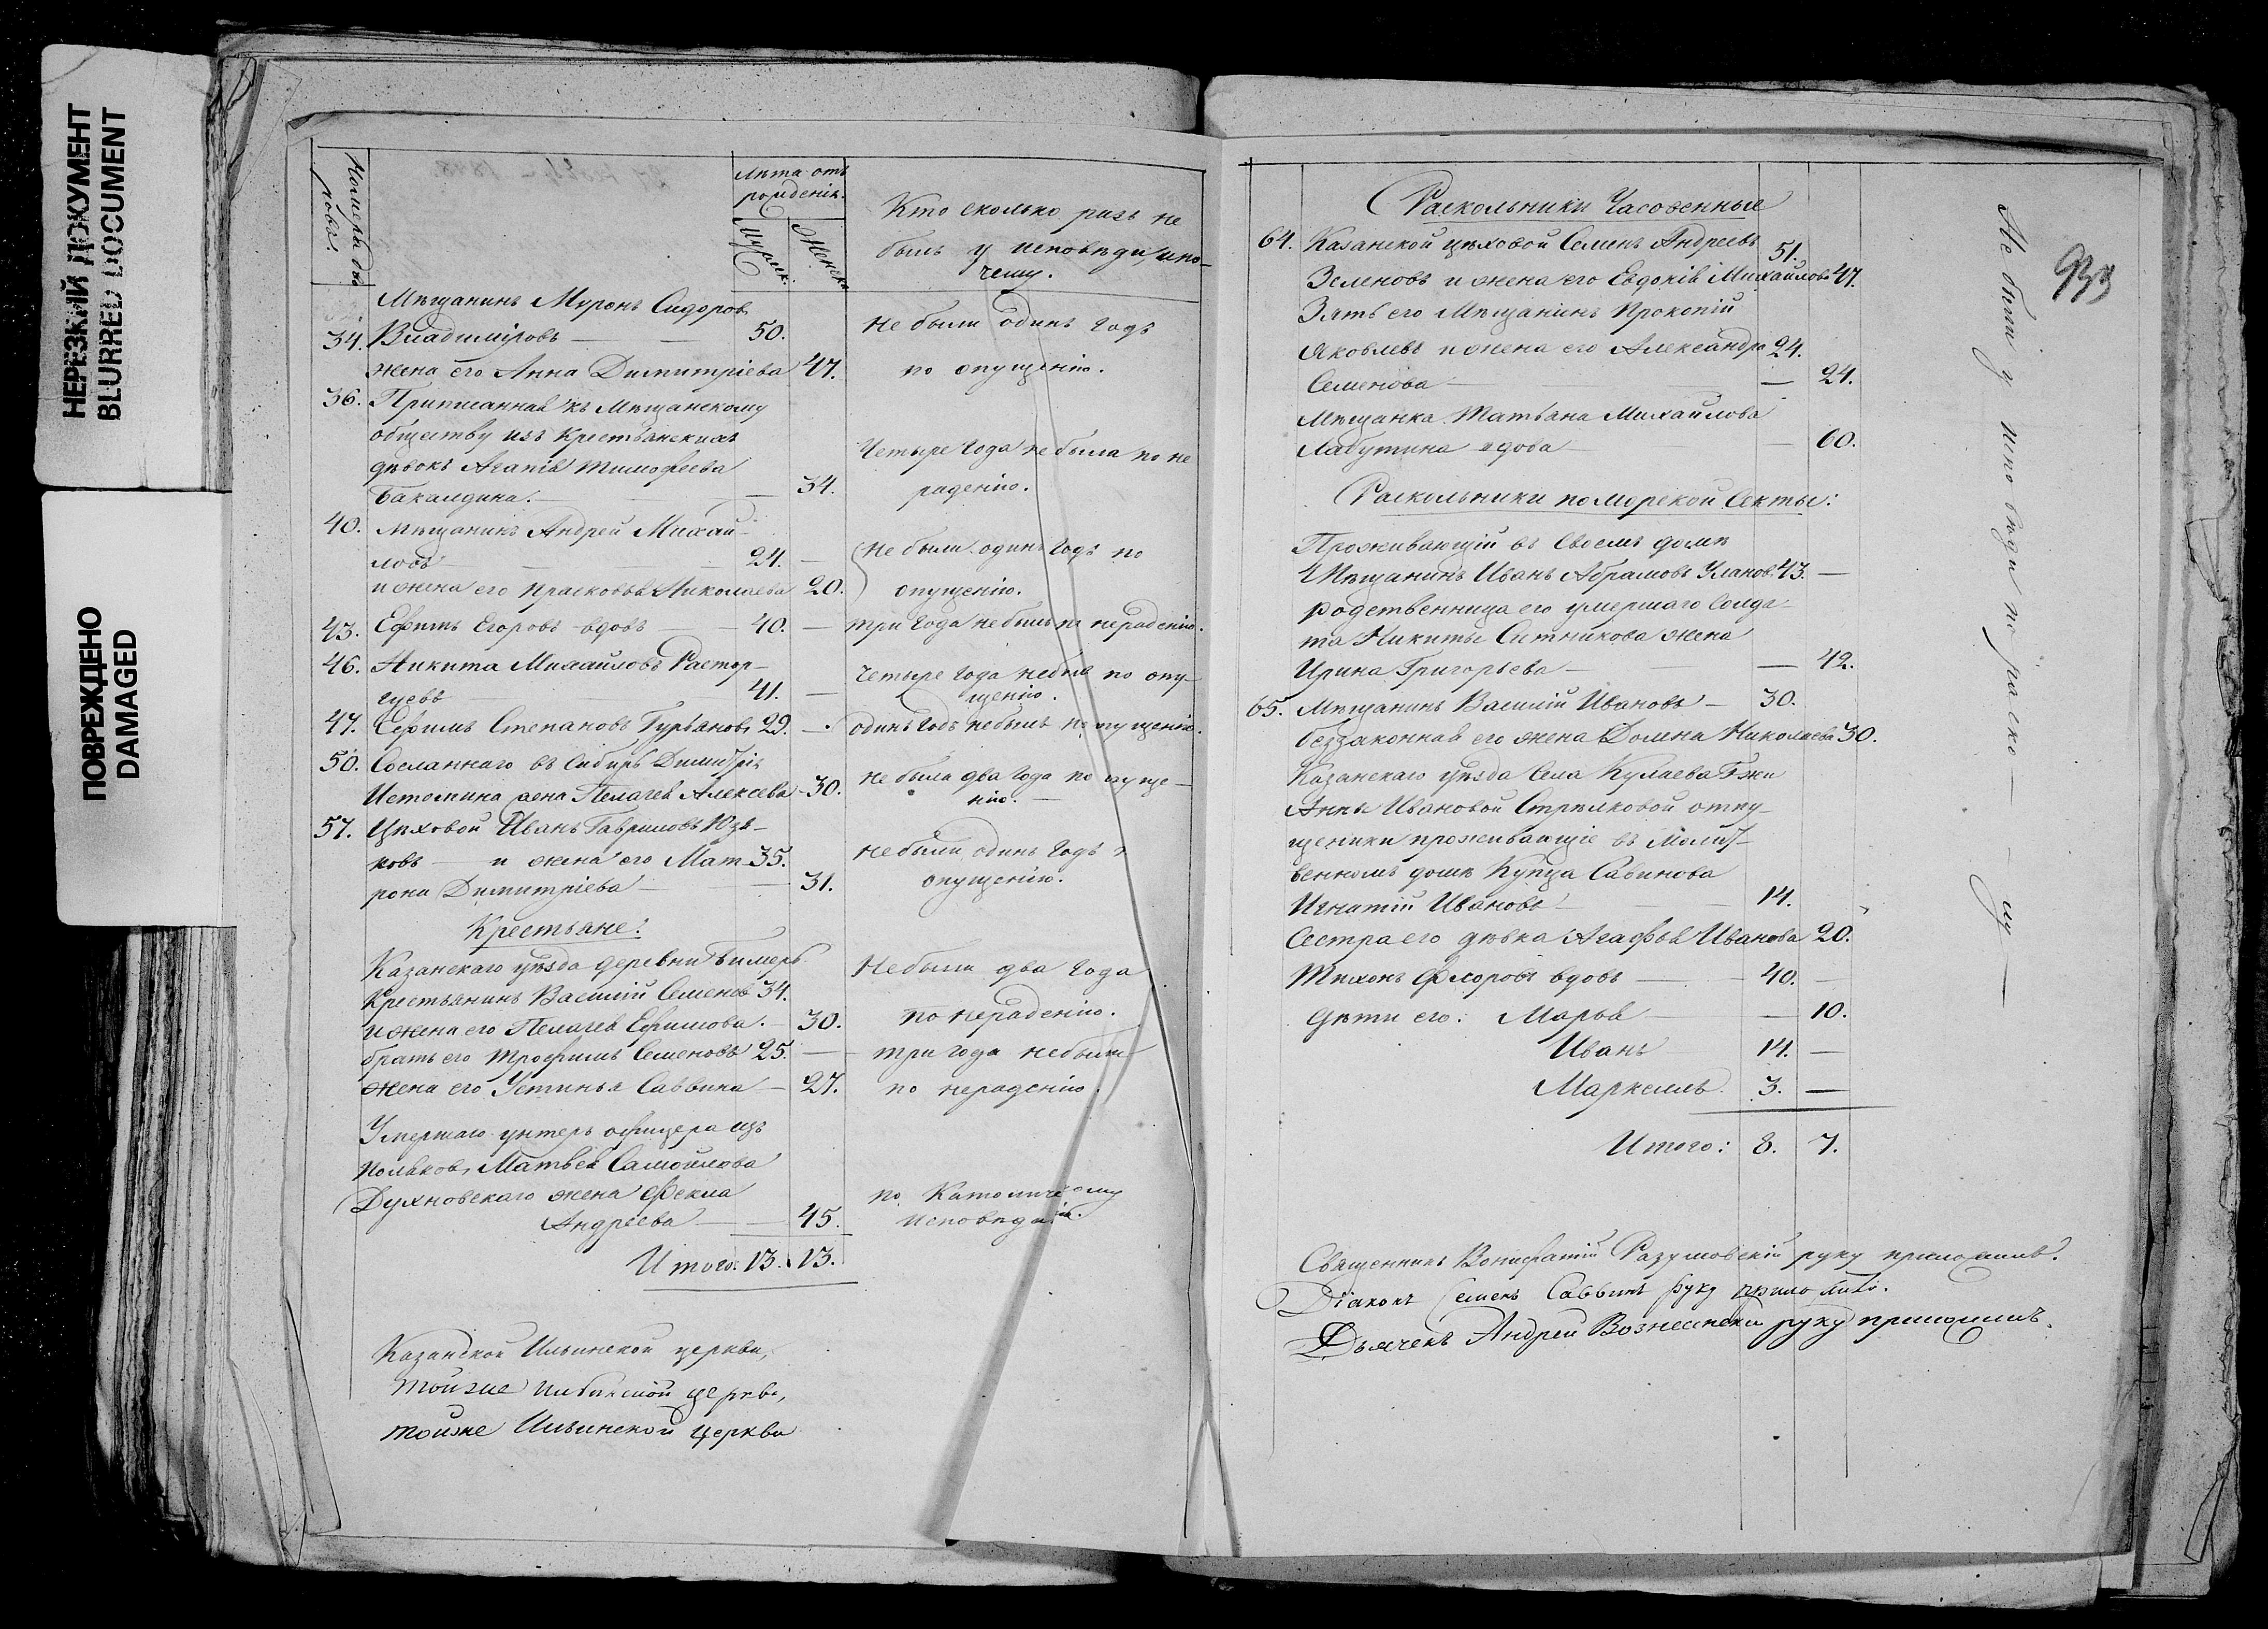 НЕРЕЗКИЙ ДОКУМЕНТ
BLURRED DOCUMENT
ПОВРЕЖДЕНО
DAMAGED
Номера до-
мовъ.
Лѣта отъ
рожденія.
Мужск.
Женск.
Кто сколько разъ не
былъ у исповѣди, и по-
чему.
Мѣщанинъ Миронъ Сидоров
34. Владиміровъ — 50.
Не были одинъ годъ
жена его Анна Димитріева 47.
по опущенію.
36. Приписанная къ Мѣщанскому
обществу изъ крестьянскихъ
дѣвокъ Агапія Тимофеева
Четыре года не была по не
Бакалдина. — 34.
радению.
40. Мѣщанинъ Андрей Михай-
ловъ — 24. —
Не были одинъ годъ по
и жена его Прасковья Николаева 20.
опущенію.
43. Ефимъ Егоровъ вдовъ — 40. —
три года не былъ по нерадению.
46. Никита Михайловъ Растор-
Четыре года не былъ по опу-
гуевъ 41. —
щенію.
47. Ефимъ Степановъ Гурьяновъ 29. —
одинъ годъ не былъ по опущенію.
50. Сосланнаго въ Сибирь Димитрія
Истомина жена Пелагея Алексева 30.
не была два года по опуще-
нію. —
57. Цѣховой Иванъ Гавриловъ
ковъ — и жена его Мат- 35.
не были одинъ годъ
рона Димитріева — 31.
опущенію.
Крестьяне:
Казанскаго уѣзда деревни Бимерь
Не были два года
Крестьянинъ Василій Семеновъ 34.
и жена его Пелагея Ефимова. — 30.
по нерадению.
братъ его Трофимъ Семеновъ 25. —
три года не были
жена его Устинья Саввина — 27.
по нерадению.
Умершаго унтеръ офицера изъ
поляковъ, Матвея Самойлова
Духновскаго жена Фекла
по Католическому
Андреева — 45.
исповѣданію.
Итого: 13. 13.
Казанской Ильинской церкви,
тойже Ильинской церкви,
тойже Ильинской церкви
Раскольники Часовенные
64. Казанской цѣховой Семенъ Андреевъ 51.
Зеленовъ и жена его Евдокія Михайлова 47.
Зять его Мѣщанинъ Прокопій
Яковлевъ и жена его Александра 24.
Семенова — 24.
Мѣщанка Татьяна Михайлова
Лабутина вдова — 60.
Раскольники поморской Секты:
Проживающій въ своемъ домѣ
Мѣщанинъ Иванъ Абрамовъ Улановъ 43. —
родственница его умершаго солда-
та Никиты Ситникова жена
Ирина Григорьева — 42.
65. Мѣщанинъ Василій Ивановъ — 30.
беззаконная его жена Домна Николаева 30.
Казанскаго уѣзда Села Кулаева Гжи
Анны Ивановой Стрѣлковой отпу-
щеники проживающіе въ Молит-
венномъ домѣ Купца Савинова
Игнатій Ивановъ — 14.
Сестра его дѣвка Агафья Иванова 20.
Тихонъ Флоровъ вдовъ — 40. —
дѣти его: Марья — 10.
Иванъ 14. —
Маркеллъ 3. —
Итого: 8. 7.
Не были у исповѣди по раско-
лу —
Священникъ Вонифатій Разумовскій руку приложилъ.
Діаконъ Семенъ Саввинъ руку приложилъ.
Дьячекъ Андрей Вознесенскій руку приложилъ.